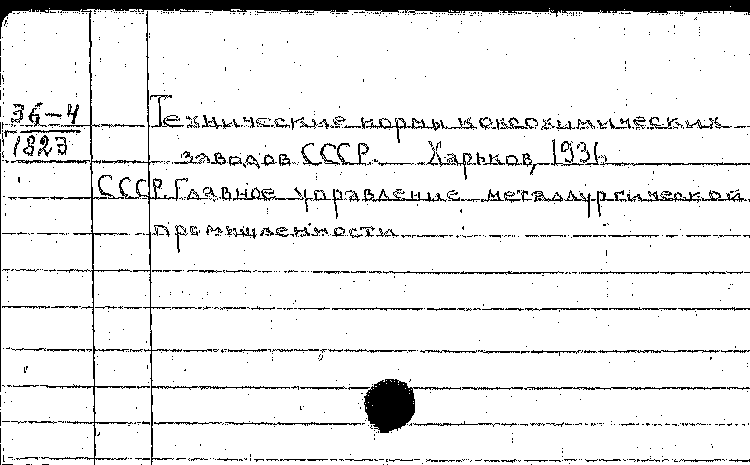 36-4
1823
Технические нормы коксохимических
заводов СССР. Харьков, 1936
СССР. Главное управление металлургической
промышленности